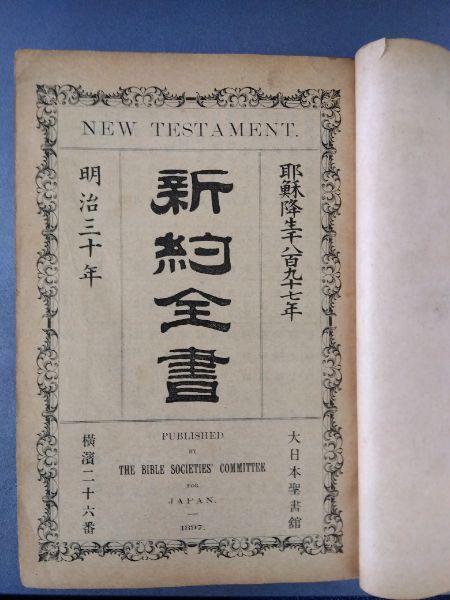 NEW TESTAMENT.
耶穌降生千八百九十七年
新約全書
明治三十年
大日本聖書舘
PUBLISHED
BY
THE BIBLE SOCIETIES' COMMITTEE
FOR
JAPAN.
1897.
橫濱二十六番